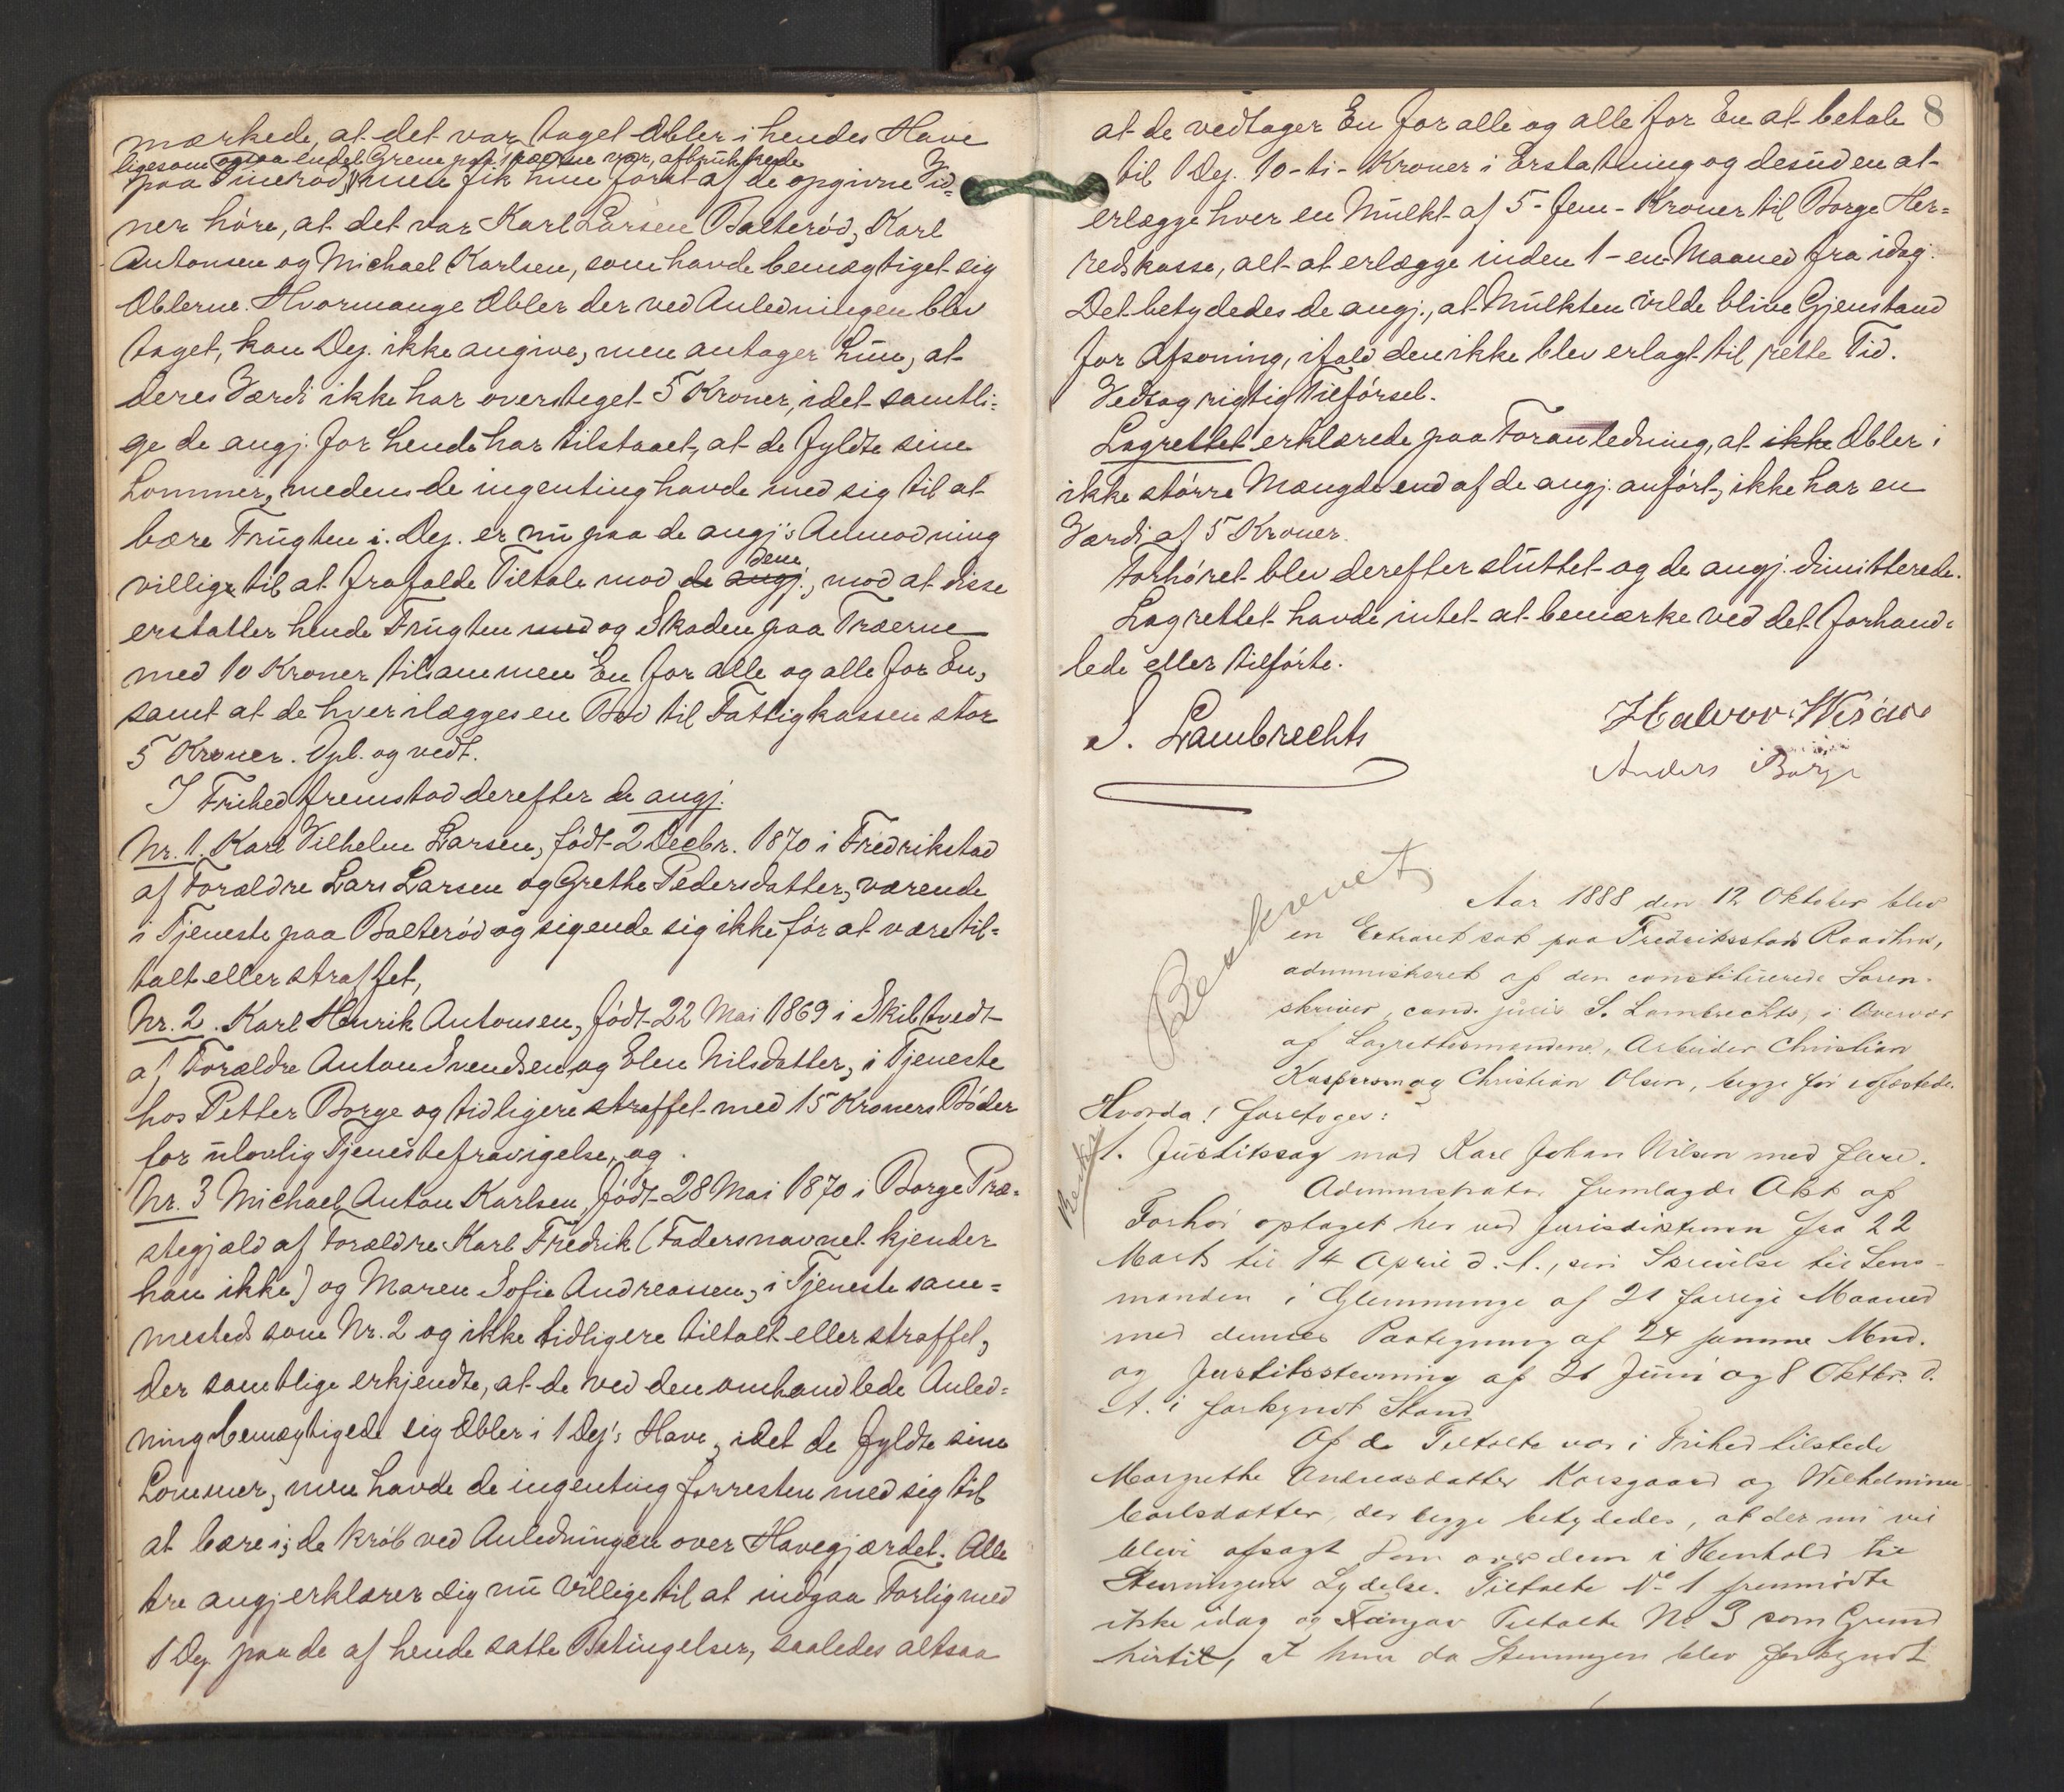 mærkede, at det var taget Æbler i hendes Have
ligesom ogsaa endel Grene paa Træerne var afbrukkede
paa Tinerød, men fik hun først af de opgivne Vid-
ner høre, at det var Karl Larsen Balterød, Karl
Antonsen og Michael Karlsen, som havde bemægtiget sig
Æblerne. Hvormange Æbler der ved Anledningen blev
taget, kan Dep. ikke angive, men antager hun, at
deres Værdi ikke har oversteget 5 Kroner, idet samtli-
ge de angj. for hende har tilstaaet, at de fyldte sine
Lommer, medens de ingenting havde med sig til at
bære Frugten i. Dep. er nu paa de angj's Anmodning
villig til at frafalde Tiltale mod de angj. dem, mod at disse
erstatter hende Frugten med og Skaden paa Træerne
med 10 Kroner tilsammen En for alle og alle for En,
samt at de hver ilægges en Bod til Fattigkassen stor
5 Kroner. Opl. og vedt.
I Frihed fremstod derefter de angj.
Nr. 1. Karl Vilhelm Larsen, født 2 Decbr. 1870 i Fredrikstad
af Forældre Lars Larsen og Grethe Pedersdatter, værende
i Tjeneste paa Balterød og sigende sig ikke før at være til-
talt eller straffet,
Nr. 2. Karl Henrik Antonsen, født 22 Mai 1869 i Skibtvedt
af Forældre Anton Svendsen og Elen Nilsdatter, i Tjeneste
hos Petter Borge og tidligere straffet med 15 Kroners Bøder
for ulovlig Tjenestefravigelse, og
Nr. 3 Michael Anton Karlsen, født 28 Mai 1870 i Borge Præ-
stegjæld af Forældre Karl Fredrik (Fadersnavnet kjender
han ikke) og Maren Sofie Andreassen, i Tjeneste sam-
mesteds som Nr. 2 og ikke tidligere tiltalt eller straffet,
der samtlige erkjendte, at de ved den omhandlede Anled-
ning bemægtigede sig Æbler i 1 Dep's Have, idet de fyldte sine
Lommer, men havde de ingenting forresten med sig til
at bære i; de krøb ved Anledningen over Havegjærdet. Alle
tre angj erklærer sig nu villige til at indgaa Forlig med
1 Dep. paa de af hende satte Betingelser, saaledes altsaa
8
at de vedtager En for alle og alle for En at betale
til 1 Dep. 10 - ti - Kroner i Erstatning og desuden at
erlægge hver en Mulkt af 5 - fem - Kroner til Borge Her-
redskasse, alt at erlægge inden 1 - en Maaned fra idag.
Det betydedes de angj., at Mulkten vilde blive Gjenstand
for Afsoning, ifald den ikke blev erlagt til rette Tid.
Vedtog rigtig Tilførsel.
Lagrettet erklærede paa Foranledning, at ikke Æbler i
ikke større Mængde end af de angj. anført, ikke har en
Værdi af 5 Kroner.
Forhøret blev derefter sluttet og de angj. dimitterede.
Lagrettet havde intet at bemærke ved det forhand-
lede eller tilførte.
S. Lambrechts
Halvor
Anders Borge
Beskrevet
Aar 1888 den 12 Oktober blev
en Extraret sat paa Fredriksstads Raadhus,
administreret af den constituerede Soren-
skriver, cand. juris S. Lambrechts, i Overvær
af Lagrettesmændene, Arbeider Christian
Kaspersen og Christian Olsen, begge før edfæstede.
Hvorda! foretoges:
1. Justitssag mod Karl Johan Nilsen med flere.
Administrator fremlagde Akt af
Forhør optaget her ved Jurisdiktionen fra 22
Marts til 14 April d. A., sin Skrivelse til Lens-
manden i Glemminge af 21 forrige Maaned
med dennes Paategning af 24 samme Mnd.
og Justitsstevning af 21 Juni og 8 Oktbr. d.
A. i forkyndt Stand
Af de Tiltalte var i Frihed tilstede
Margrethe Andreasdatter Korsgaard og Wilhelmine
Carlsdatter, der begge betydedes, at der nu vil
blive afsagt Dom over dem i Henhold til
Stevningens Lydelse. Tiltalte No 1 fremmødte
ikke idag og angav Tiltalte No 3 som Grund
hertil, at hun da Stevningen blev forkyndt